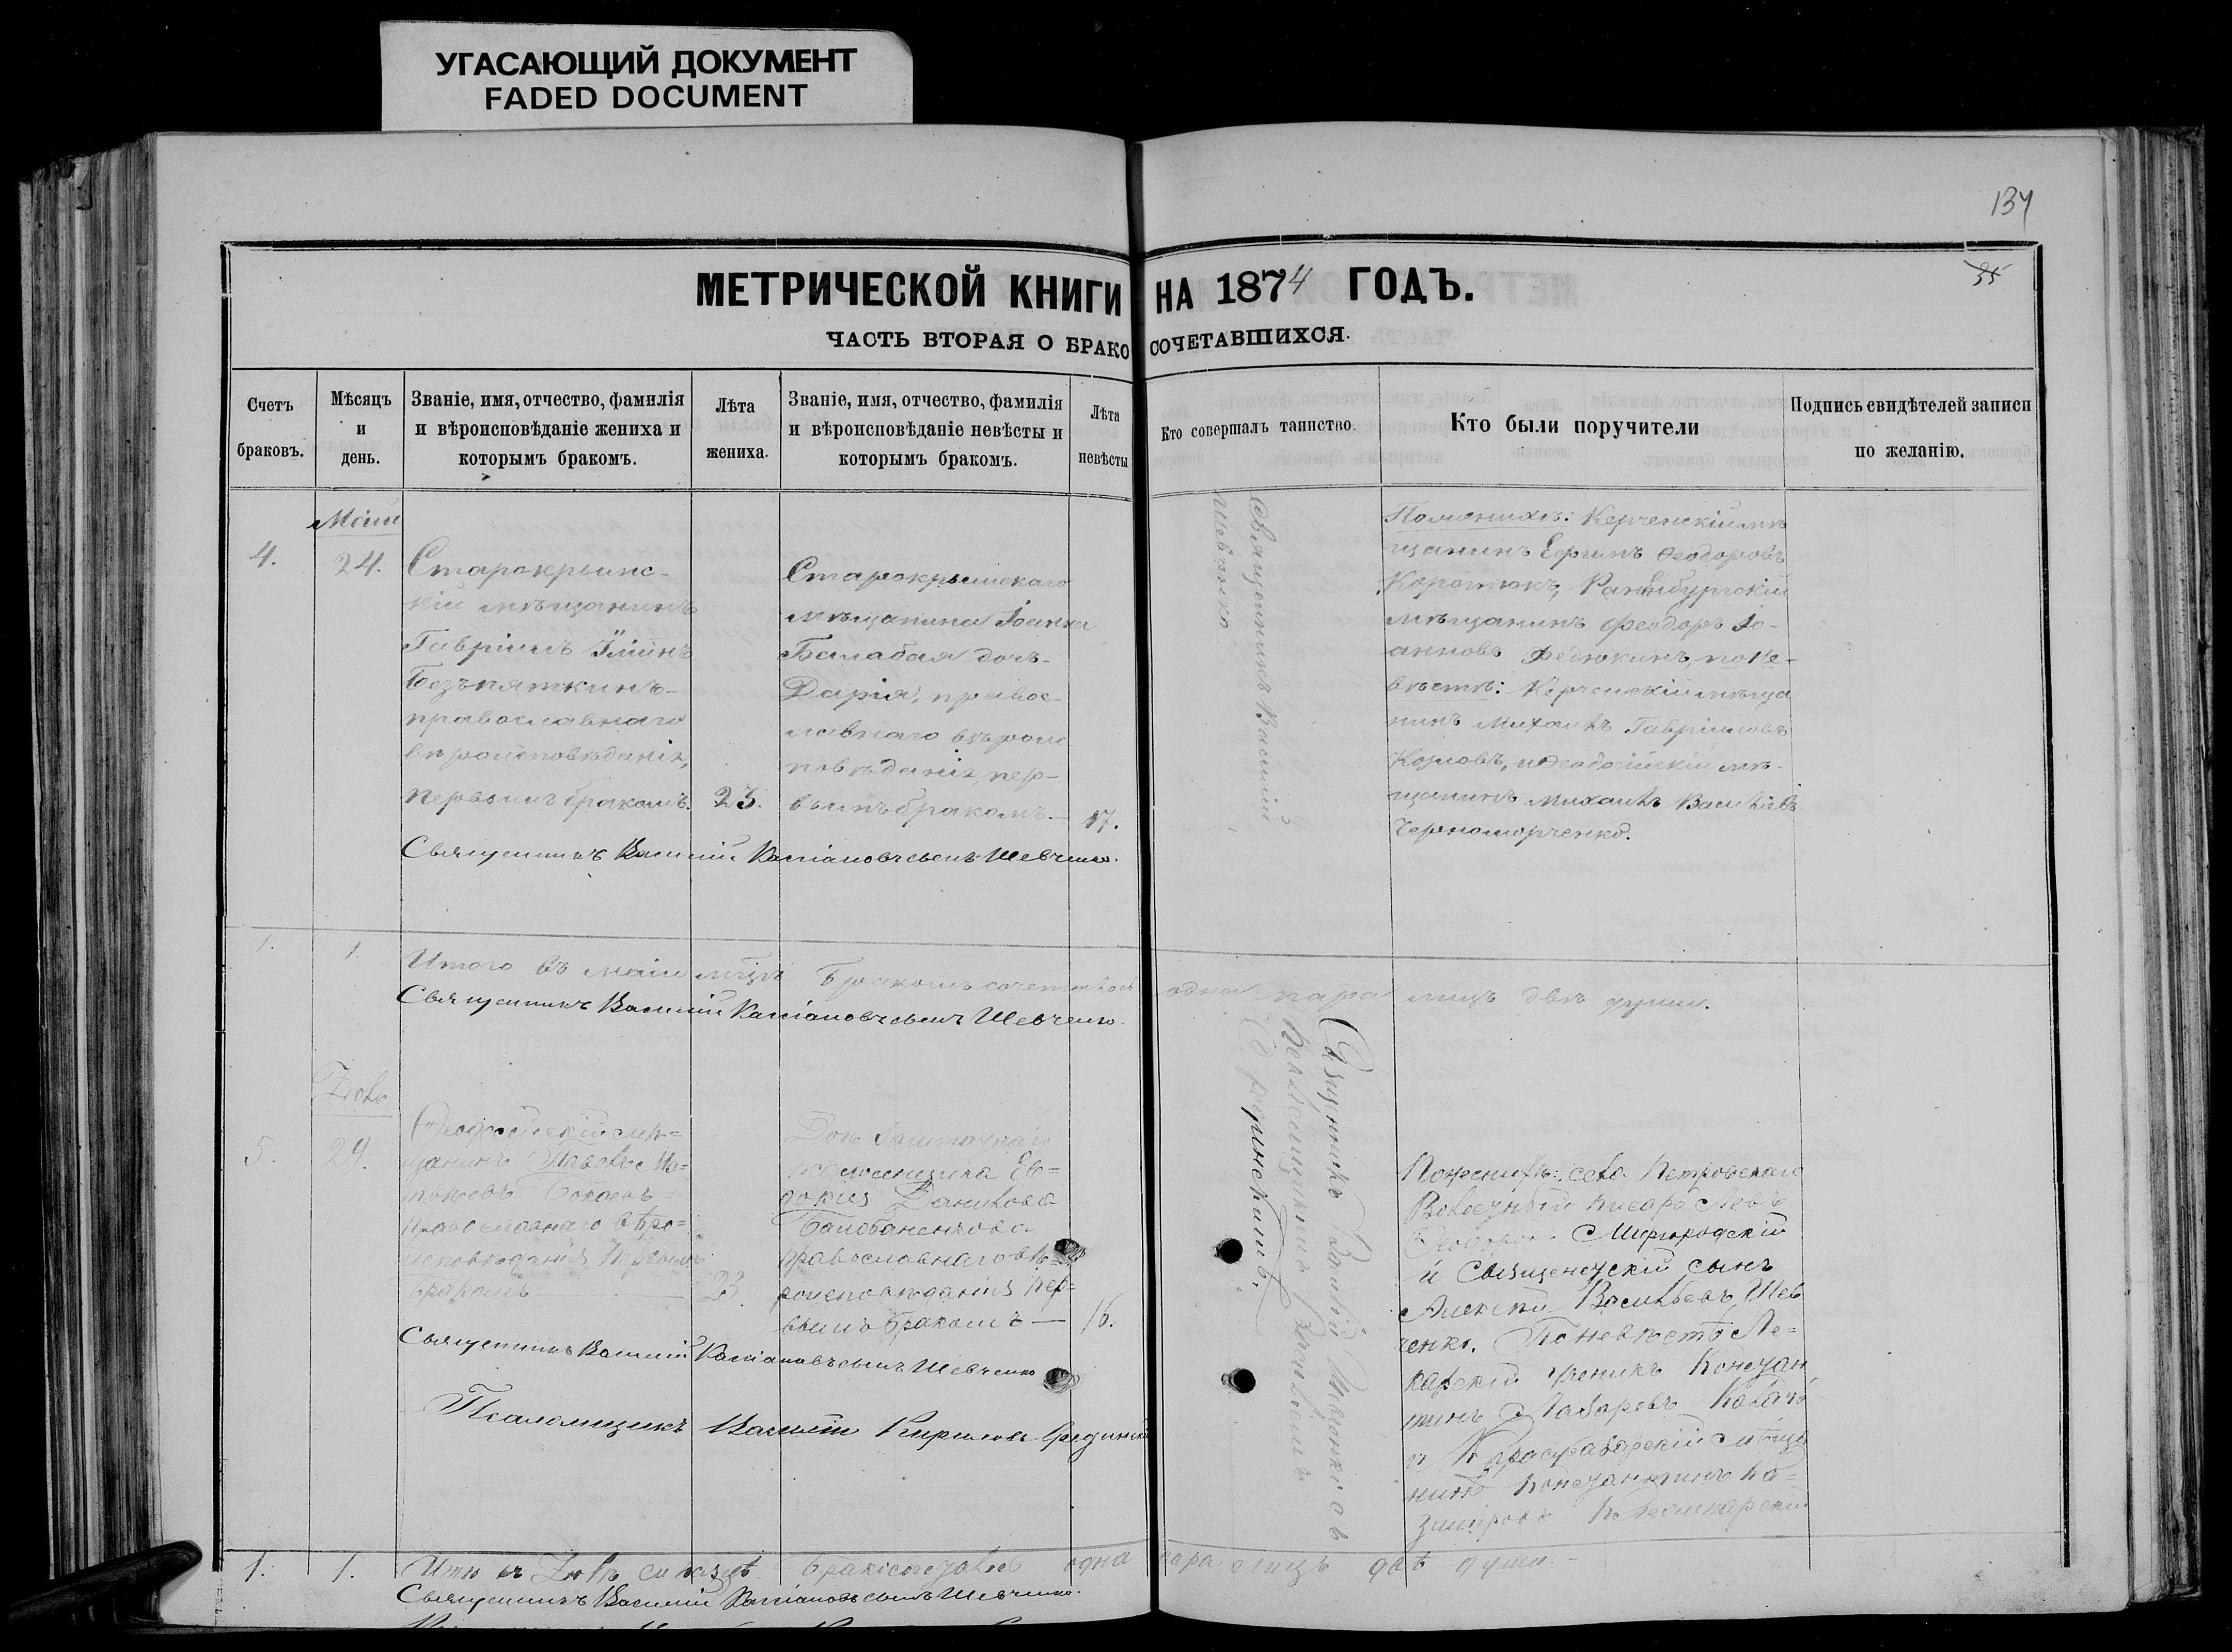 УГАСАЮЩИЙ ДОКУМЕНТ
FADED DOCUMENT
134
35
МЕТРИЧЕСКОЙ КНИГИ НА 1874 ГОДЪ.
ЧАСТЬ ВТОРАЯ О БРАКОСОЧЕТАВШИХСЯ.
Счетъ
браковъ.
Мѣсяцъ
и
день.
Званіе, имя, отчество, фамилія
и вѣроисповѣданіе жениха и
которымъ бракомъ.
Лѣта
жениха.
Званіе, имя, отчество, фамилія
и вѣроисповѣданіе невѣсты и
которымъ бракомъ.
Лѣта
невѣсты
Кто совершалъ таинство.
Кто были поручители
Подпись свидѣтелей записи
по желанію.
4.
24.
Старокрымс-
кій мѣщанинъ
Гавріилъ
Безъпяткинъ
православнаго
вѣроисповѣданія,
первымъ бракомъ.
23.
Старокрымскаго
мѣщанина Іоанна
Балабая дочь
Дарія, правос-
лавнаго вѣроис
повѣданія, пер-
вымъ бракомъ.
17.
Священникъ Василій
Шевченко
По женихѣ: Керченскій мѣ
щанинъ Ефимъ Феодоровъ
Коротюкъ, Раненбургскій
мѣщанинъ Феодоръ Іо-
анновъ Федюкинъ, по не-
вѣстѣ: Керченскій мѣща
нинъ Михаилъ Гавріиловъ
и Феодосійскій мѣ-
щанинъ Михаилъ Васильевъ
Черноморченко.
Священникъ Василій Касіановъ сынъ Шевченко.
1.
1.
Итого въ маѣ мѣсяцѣ бракомъ сочеталось одна пара лицъ двѣ души.
Священникъ Василій Касіановъ сынъ Шевченко.
5.
29.
Феодосійскій мѣ=
щанинъ
православнаго вѣро=
исповѣданія первымъ
бракомъ
23.
Ев=
докія Данилова
православнаго вѣ=
роисповѣданія пер=
вымъ бракомъ —
16.
Священникъ Василій Шевченко съ
Псаломщикомъ Василіемъ
По женихѣ: села Петровскаго
Волосный писарь Левъ
Феодоровъ Миргородскій
и Священическій сынъ
Алексѣй Васильевъ Шев
ченко. По невѣстѣ Ле=
карскій ученикъ Констан
тинъ Лазаревъ
и Карасубазарскій мѣща
нинъ Константинъ Ка=
зиміровъ
Священникъ Василій Касіановъ сынъ Шевченко
Псаломщикъ Василій Кириловъ
1.
1.
одна пара лицъ двѣ души. –
Священникъ Василій Касіановъ сынъ Шевченко.